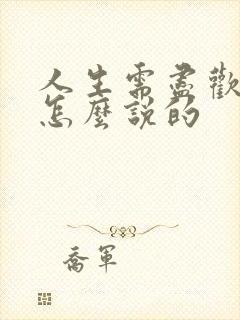 人生需盡歡
怎麼說的
喬軍